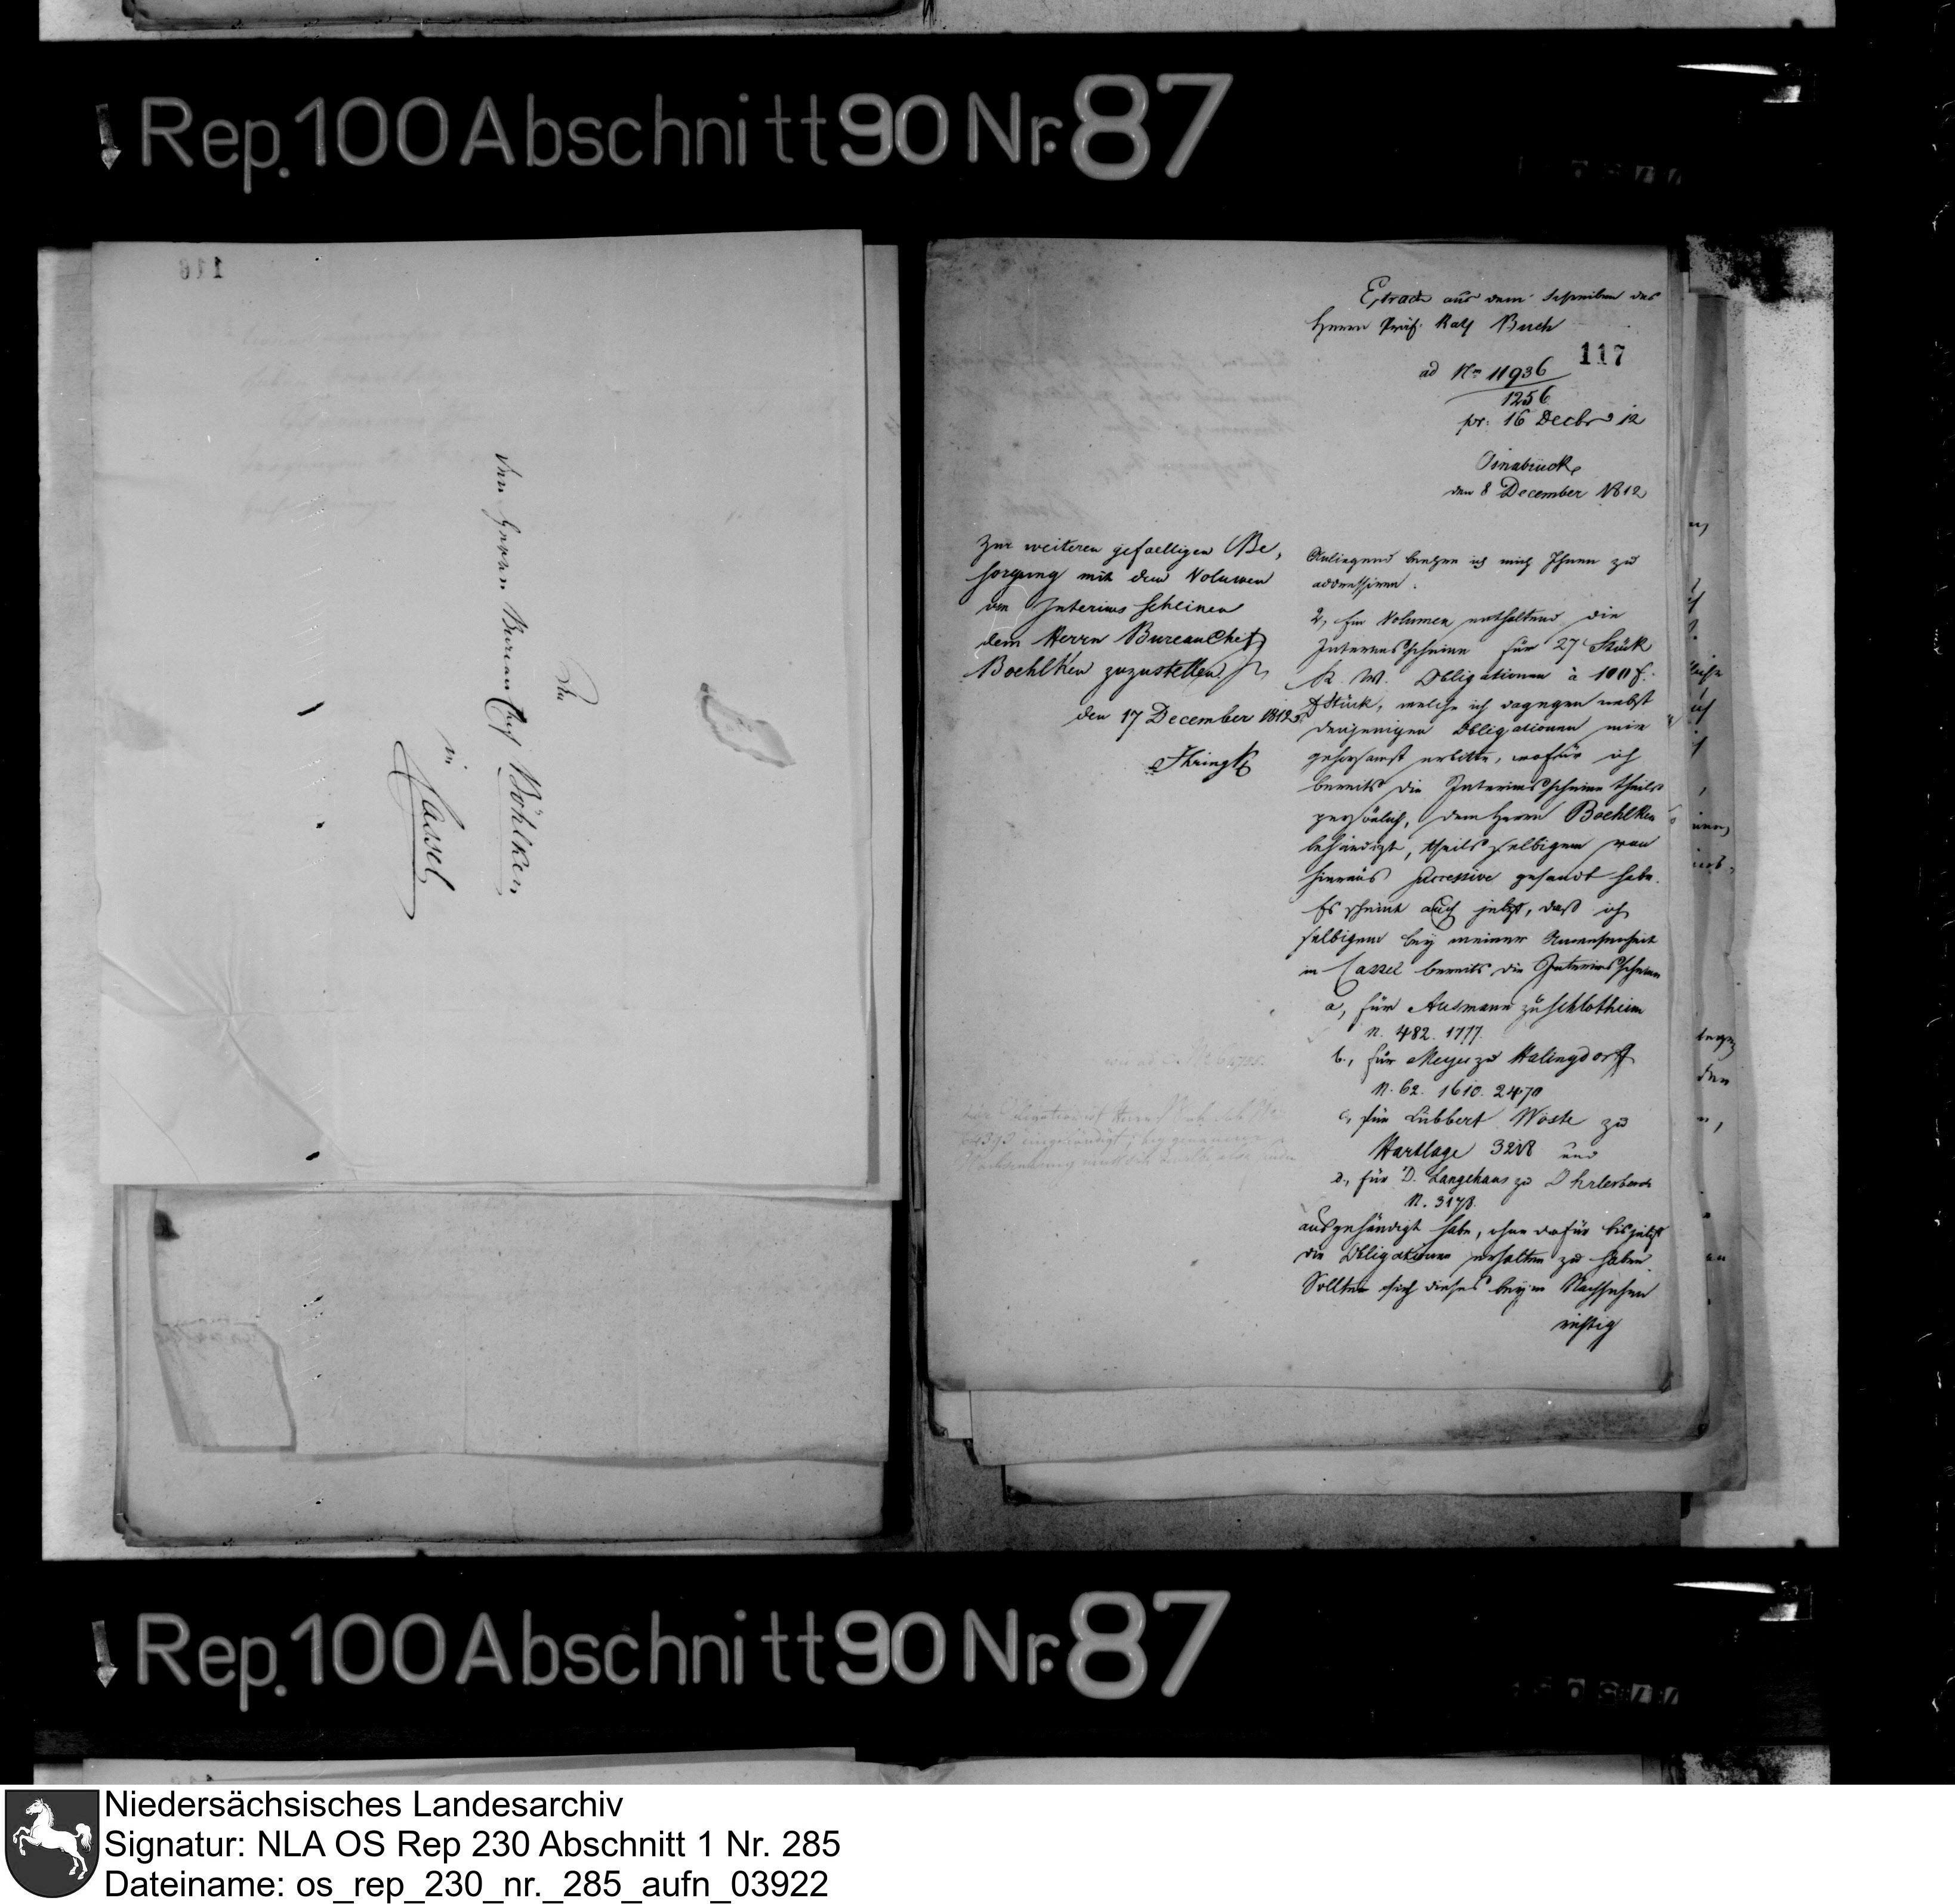 Rep. 100 Abschnitt 90 Nr. 87
116
An
den Herren Bureau Chef Böhlken
in
Cassel
Extract aus dem Schreiben des
Herrn Präf. Rath Buch
117
ad Nro 11936
1256
pr: 16 Decbr 12
Osnabrück
den 8 December 1812
Zur weiteren gefaelligen Be,
sorgung mit dem Volumen
von Interims Scheinen
dem Herrn Bureau Chef
Boehlken zuzustellen
den 17 December 1812
Anliegend beehre ich mich Ihnen zu
addressiren.
2, ein Volumen enthaltend die
Interimsscheine für 27 Stück
K. W. Obligationen à 100 f.
Stück, welche ich dagegen nebst
denjenigen Obligationen mir
gehorsamst erbitte, wofür ich
bereits die Interimsscheine theils
persönlich, dem Herrn Boehlken
behändigt, theils selbigem von
hieraus successive gesandt habe.
Es scheint auch jetzt, daß ich
selbigem bey meiner Anwesenheit
in Cassel bereits die Interimsscheine
a, für Ausmann zu Schlotheim
N. 482. 1777.
b., für Meyer zu Halingdorf
N. 62. 1610. 2470
c, für Lübbert Wöste zu
Hartlage 3218 und
d., für D. Langehaus zu
N. 3178.
ausgehändigt habe, ohne dafür bis jetzt
die Obligationen erhalten zu haben.
Sollte sich dieses beym Nachsehen
richtig
Rep. 100 Abschnitt 90 Nr. 87
Niedersächsisches Landesarchiv
Signatur: NLA OS Rep 230 Abschnitt 1 Nr. 285
Dateiname: os_rep_230_nr._285_aufn_03922